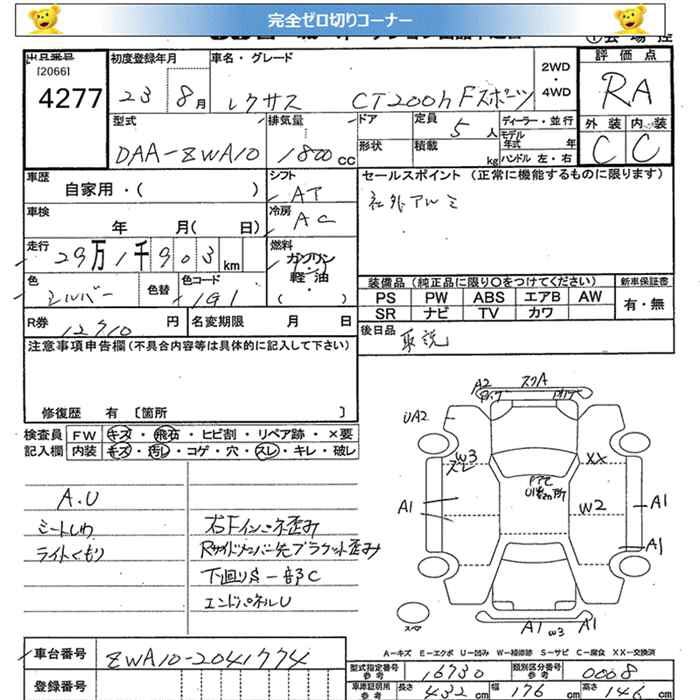 完全ゼロ切りコーナー
出品番号
[2066]
4277
初度登録年月
23 8月
車名・グレード
レクサス CT200h Fスポーツ
2WD
・
4WD
評価点
RA
外装 内装
C C
型式
DAA-ZWA10
排気量
1800 CC
ドア
形状
定員 5 人
積載 kg
ディーラー・並行
モデル
年式 年
ハンドル 左・右
車歴
自家用・( )
シフト
AT
車検
年 月(日)
冷房
AC
走行
29万1千903 km
燃料
ガソリン
軽・油
( )
色
シルバー
色替
色コード
191
R券 12710 円
名変期限 月 日
セールスポイント (正常に機能するものに限ります)
社外アルミ
装備品 (純正品に限り〇をつけてください)
新車保証書
PS PW ABS エアB AW
SR ナビ TV カワ
有・無
後日品
取説
注意事項申告欄 (不具合内容等は具体的に記入して下さい)
修復歴 有 [箇所 ]
検査員 FW キズ・飛石・ヒビ割・リペア跡・×要
記入欄 内装 キズ・汚し・コゲ・穴・スレ・キレ・破レ
A.U
シートしわ
ライトくもり
右Fインパネ歪み
Rサイドメンバー先ブラケット歪み
下回りS一部C
エンドパネルU
A2
スリA
UA2
W3
スレ
XX
ドアで
A1
W2
A1
A1
スペア
A1
W3
A1
A-キズ E-エクボ U-凹み W-補修跡 S-サビ C-腐食 XX-交換済
車台番号 ZWA10-2041774
登録番号
型式指定番号
参考
16730
類別区分番号
参考
0008
車庫証明用
参考
長さ 432 cm 幅 176 cm 高さ 146 cm